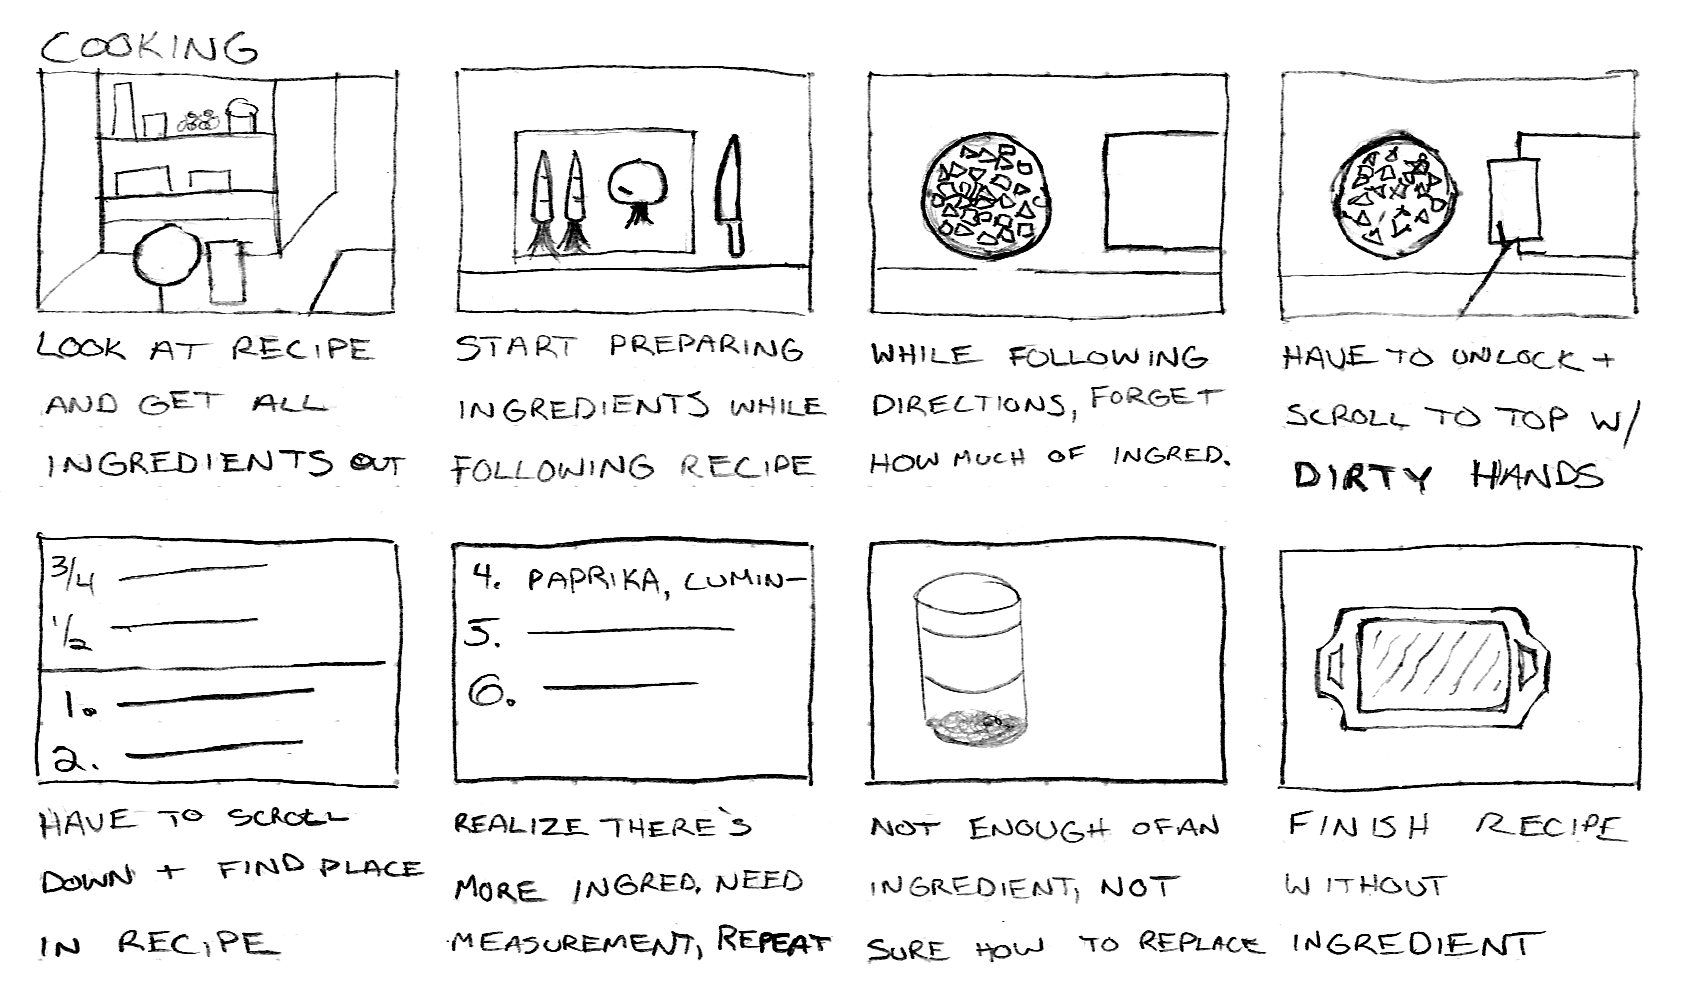 COOKING
LOOK AT RECIPE
AND GET ALL
INGREDIENTS OUT
START PREPARING
INGREDIENTS WHILE
FOLLOWING RECIPE
WHILE FOLLOWING
DIRECTIONS, FORGET
HOW MUCH OF INGRED.
HAVE TO UNLOCK +
SCROLL TO TOP W/
DIRTY HANDS
3/4
1/2
1.
2.
HAVE TO SCROLL
DOWN + FIND PLACE
IN RECIPE
4. PAPRIKA, CUMIN-
5.
6.
REALIZE THERE'S
MORE INGRED. NEED
MEASUREMENT, REPEAT
NOT ENOUGH OF AN
INGREDIENT, NOT
SURE HOW TO REPLACE
FINISH RECIPE
WITHOUT
INGREDIENT